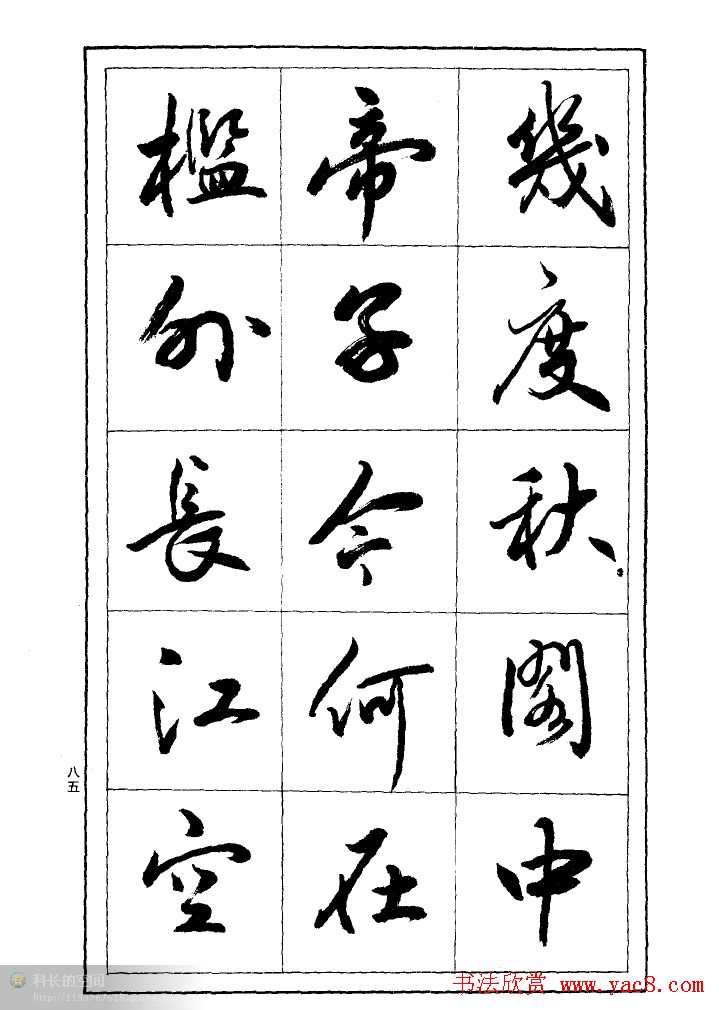 幾度秋閣中
帝子今何在
檻外長江空
八五
科长的空间
书法欣赏 www.yac8.com